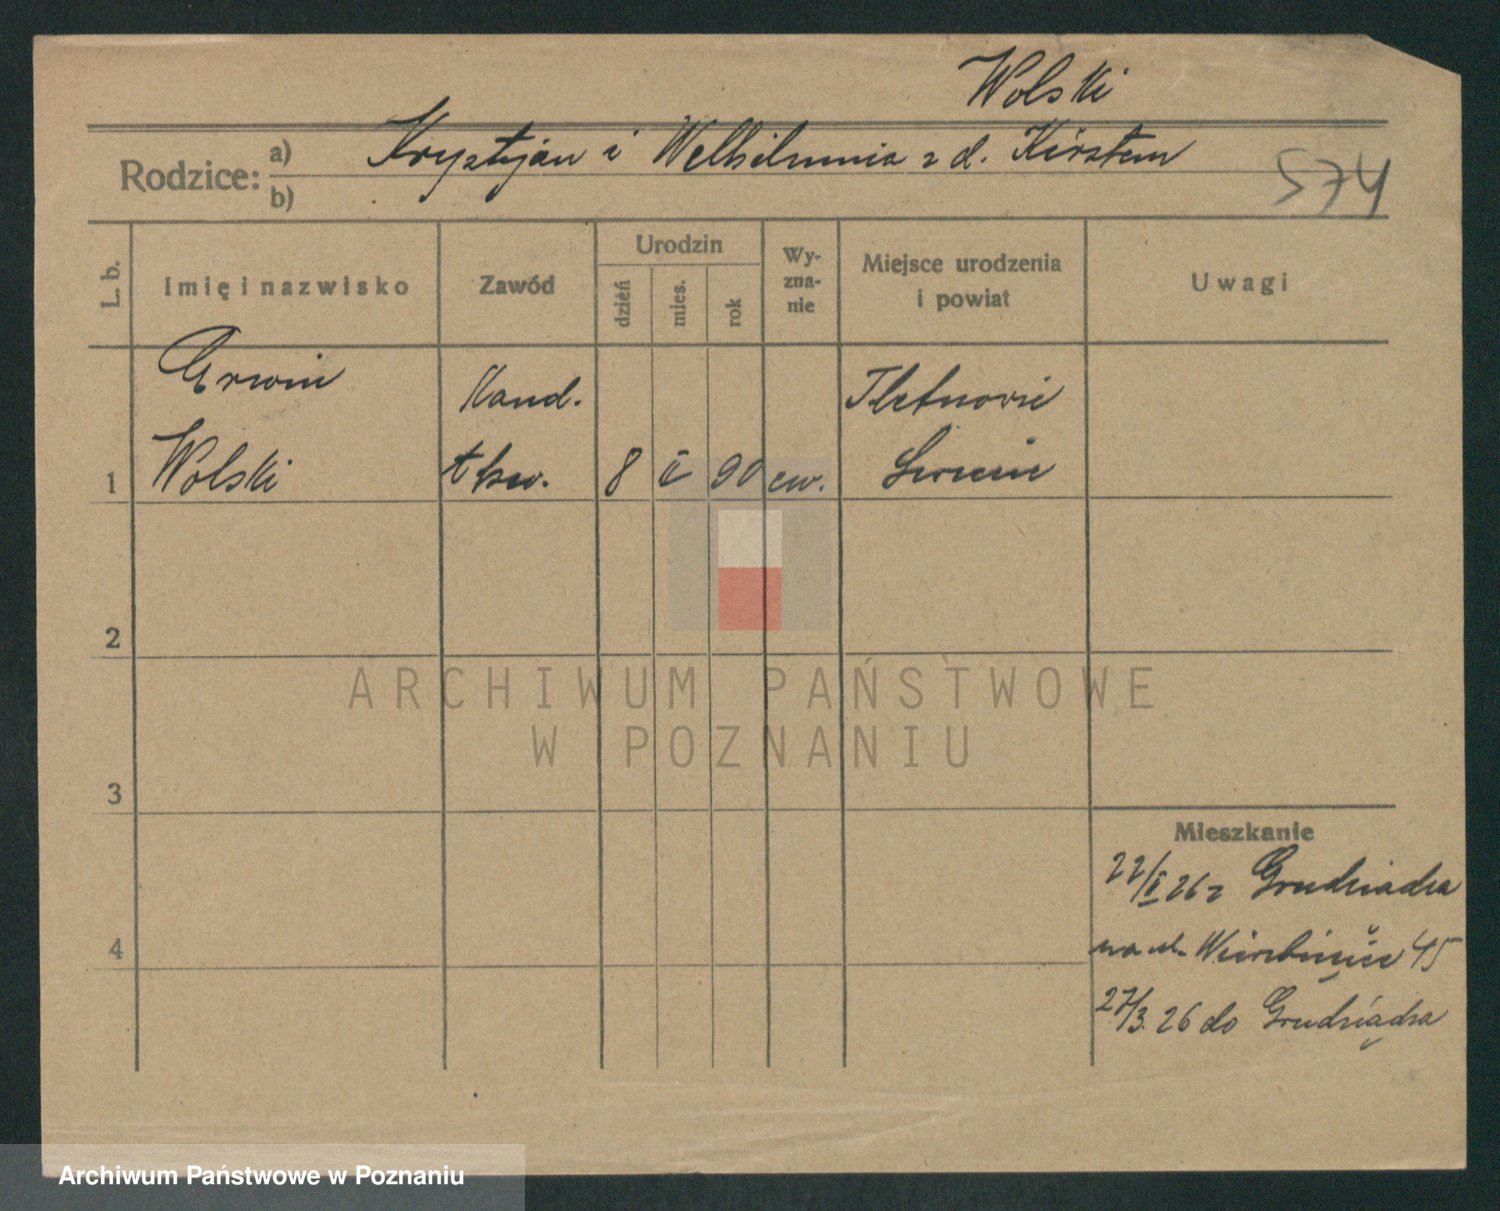 Wolski
Rodzice: a) Krystyjan i Welhilmina z d. Kirstein
b)
574
L. b.
Imię i nazwisko
Zawód
Urodzin
dzień
mies.
rok
Wy-
zna-
nie
Miejsce urodzenia
i powiat
Uwagi
Erwin Kand.
1 Wolski 8 II 90 ew. Świecie
2
3
4
ARCHIWUM PAŃSTWOWE
W POZNANIU
Mieszkanie
22/II 26 z Grudziądza
na ul. Wierzbięcice 45
27/3. 26 do Grudziądza
Archiwum Państwowe w Poznaniu